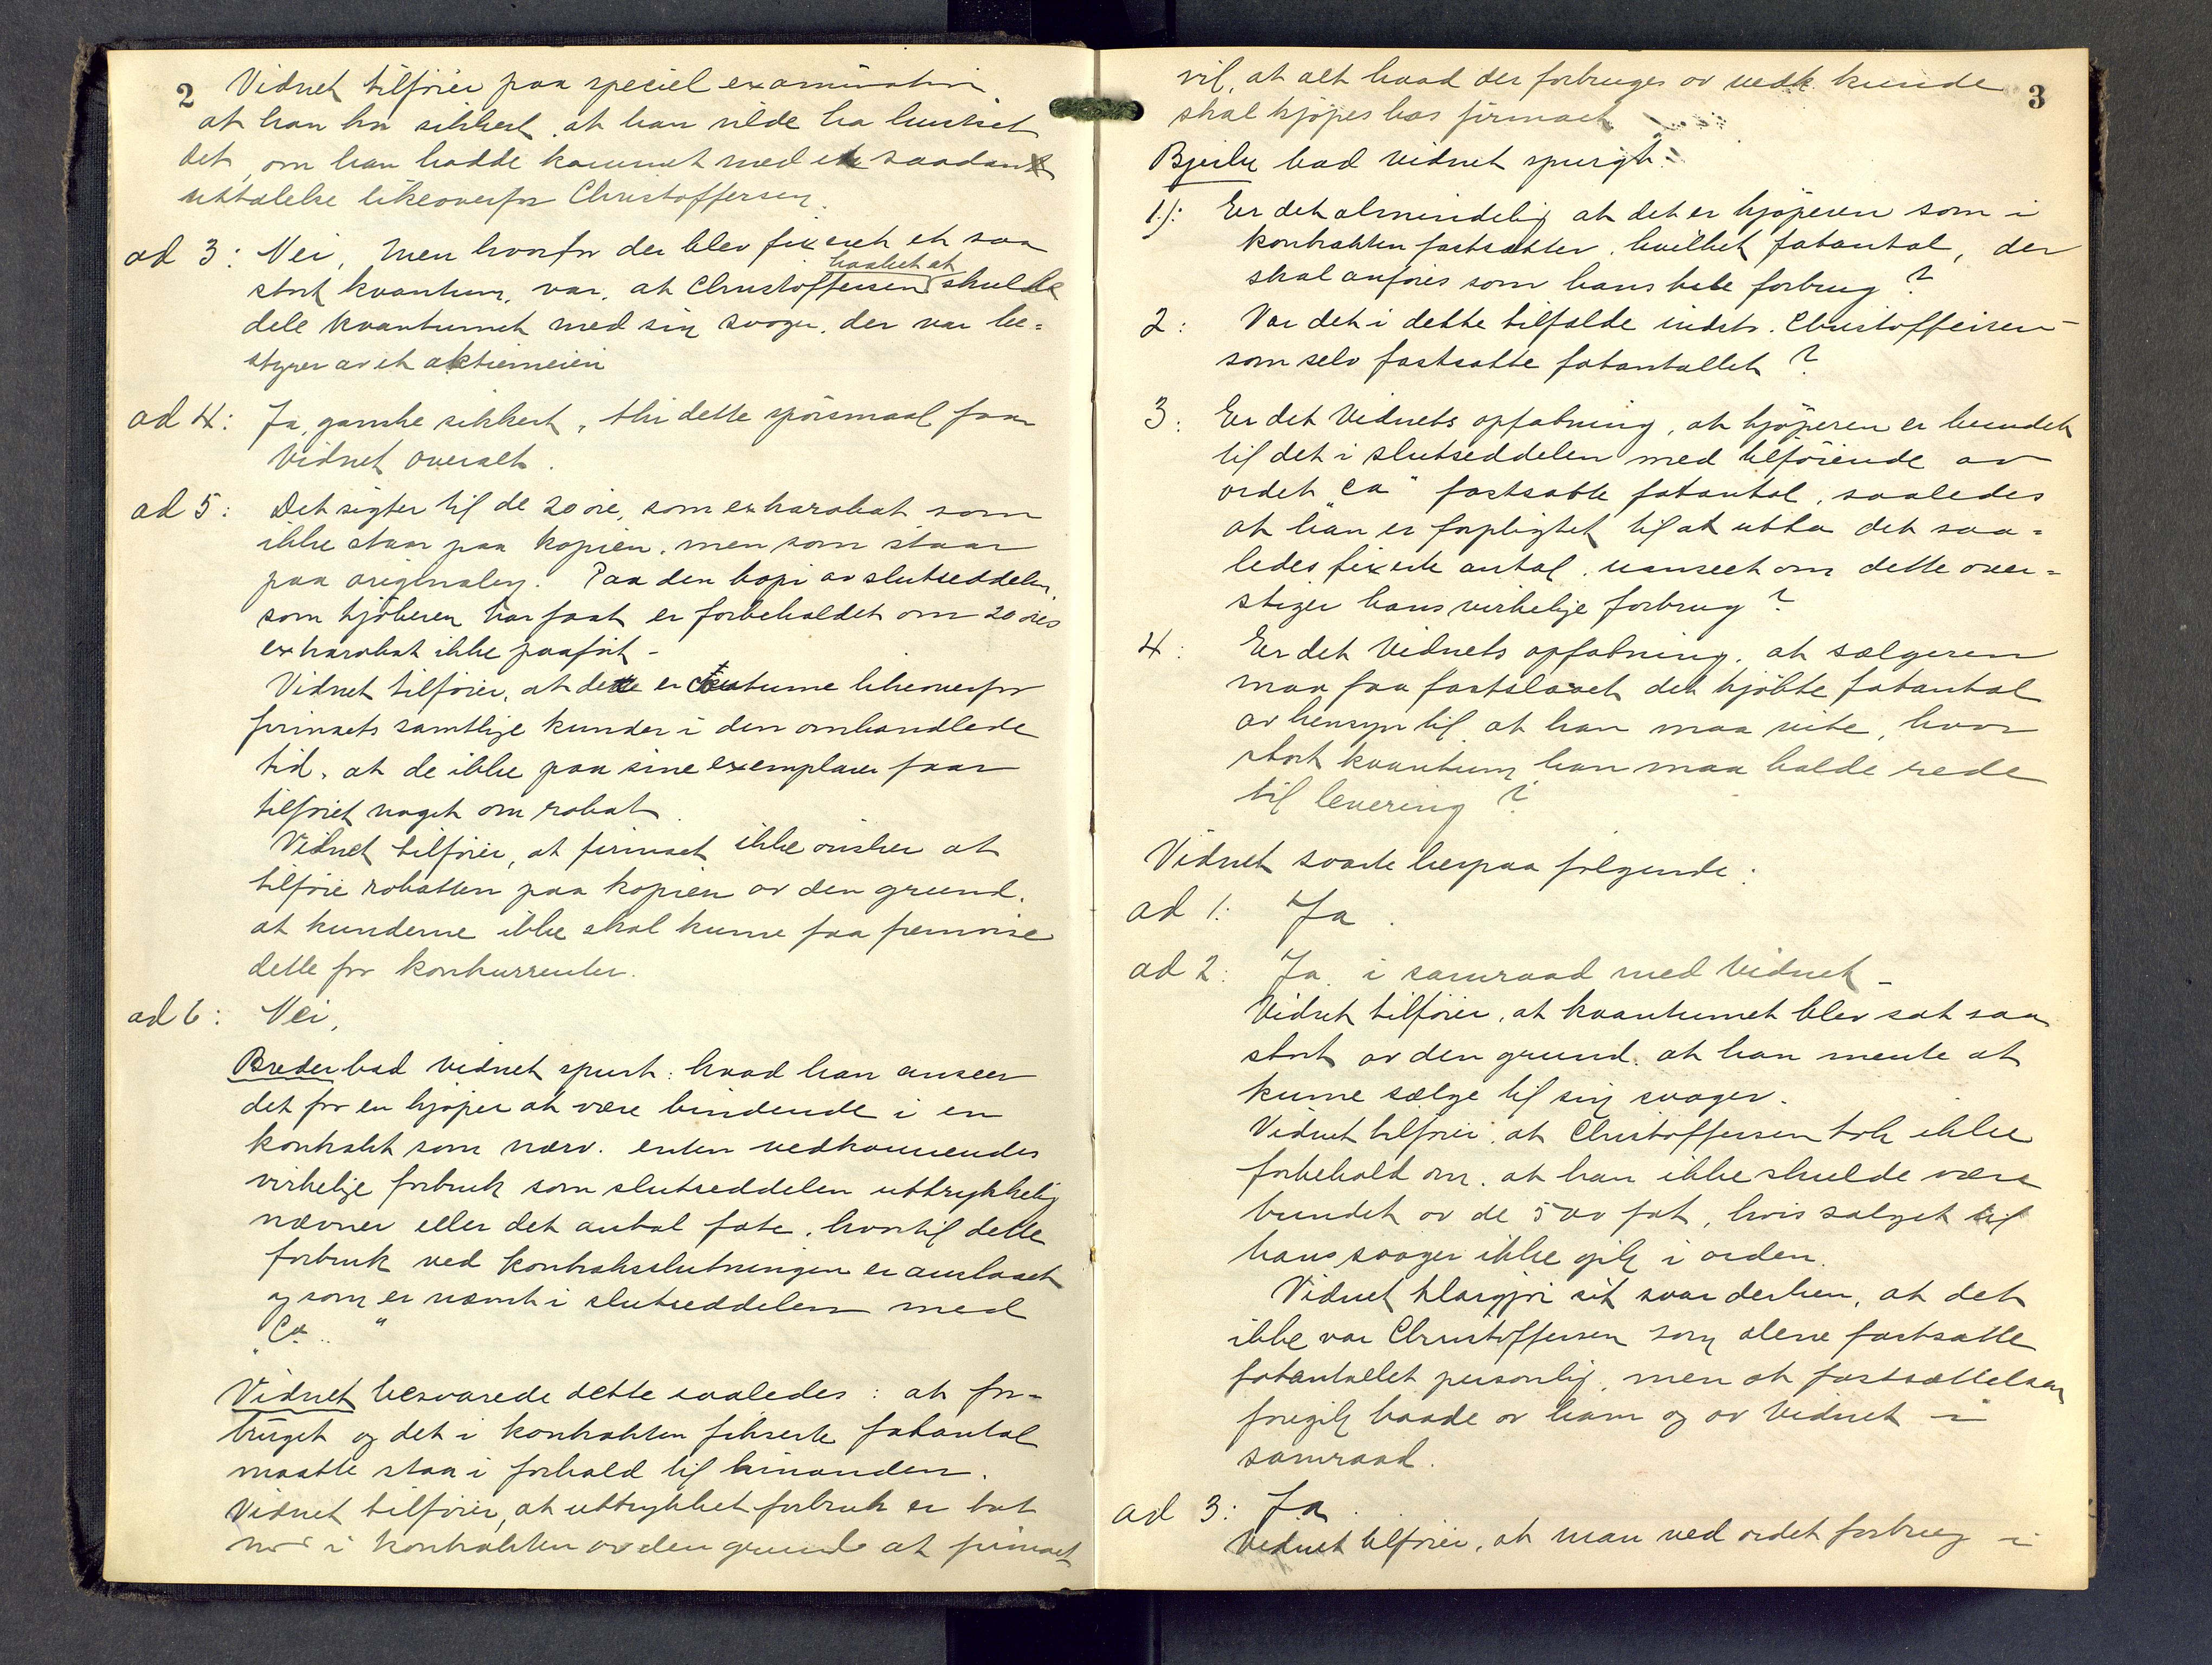 2
Vidnet tilføier paa speciel examination
at han tror sikkert, at han vilde ha husket
det, om han hadde kommet med en saadan
uttalelse likeoverfor Christoffersen.
ad 3: Nei, men hvorfor der blev fixeret et saa
haabet at
stort kvantum, var, at Christoffersen skulde
dele kvantumet med sin svoger, der var be=
styrer av et aktiemeieri
ad 4: Ja, ganske sikkert, thi dette spørsmaal faar
Vidnet overalt.
ad 5: Det sigter til de 20 øre, som extrarabat som
ikke staar paa kopien, men som staar
paa originalen. Paa den kopi av slutseddelen,
som kjøberen har faat er forbeholdet om 20 øres
extrarabat ikke paaført -
Vidnet tilføier, at dette er kutume likeoverfor
firmaets samtlige kunder i den omhandlede
tid, at de ikke paa sine exemplarer faar
tilføiet noget om rabat.
Vidnet tilføier, at firmaet ikke ønsker at
tilføie rabatten paa kopien av den grund,
at kunderne ikke skal kunne faa fremvise
dette for konkurrenter.
ad 6: Nei,
Breder bad vidnet spurt: hvad han anseer
det for en kjøper at være bindende i en
kontrakt som nærv. enten vedkommendes
virkelige forbruk som slutseddelen uttrykkelig
nævner eller det antal fate, hvortil dette
forbruk ved kontraktslutningen er anslaaet
og som er nævnt i slutseddelen med
"Ca .. "
Vidnet besvarede dette saaledes: at for-
bruget og det i kontrakten fikserte fatantal
maatte staa i forhold til hinanden.
Vidnet tilføier, at uttrykket forbruk er tat
med i kontrakten av den grund at firmaet
3
vil, at alt hvad der forbruges av vedk. kunde
skal kjøpes hos firmaet
Bjerke bad vidnet spurgt:
1): Er det almindelig at det er kjøperen som i
kontrakten fastsætter, hvilket fatantal, der
skal anføres som hans hele forbrug?
2: Var det i dette tilfælde indstr. Christoffersen
som selv fastsatte fatantallet?
3: Er det Vidnets opfatning, at kjøperen er bundet
til det i slutseddelen med tilføiende av
ordet "ca" fastsatte fatantal, saaledes
at han er forpligtet til at utta det saa=
ledes fixerte antal, uanseet om dette over=
stiger hans virkelige forbrug?
4: Er det Vidnets opfatning, at sælgeren
maa faa fastslaaet det kjøbte fatantal
av hensyn til, at han maa vite, hvor
stort kvantum han maa holde rede
til levering?
Vidnet svarte herpaa følgende:
ad 1: Ja.
ad 2: Ja, i samraad med Vidnet -
Vidnet tilføier, at kvantumet blev sat saa
stort av den grund, at han mente at
kunne sælge til sin svoger.
Vidnet tilføier, at Christoffersen tok ikke
forbehold om, at han ikke skulde være
bundet av de 500 fat, hvis salget til
hans svoger ikke gik i orden.
Vidnet klargjør sit svar derhen, at det
ikke var Christoffersen som alene fastsatte
fatantallet personlig, men at fastsættelsen
foregik baade av ham og av Vidnet i
samraad.
ad 3: Ja.
Vidnet tilføier, at man ved ordet forbrug i